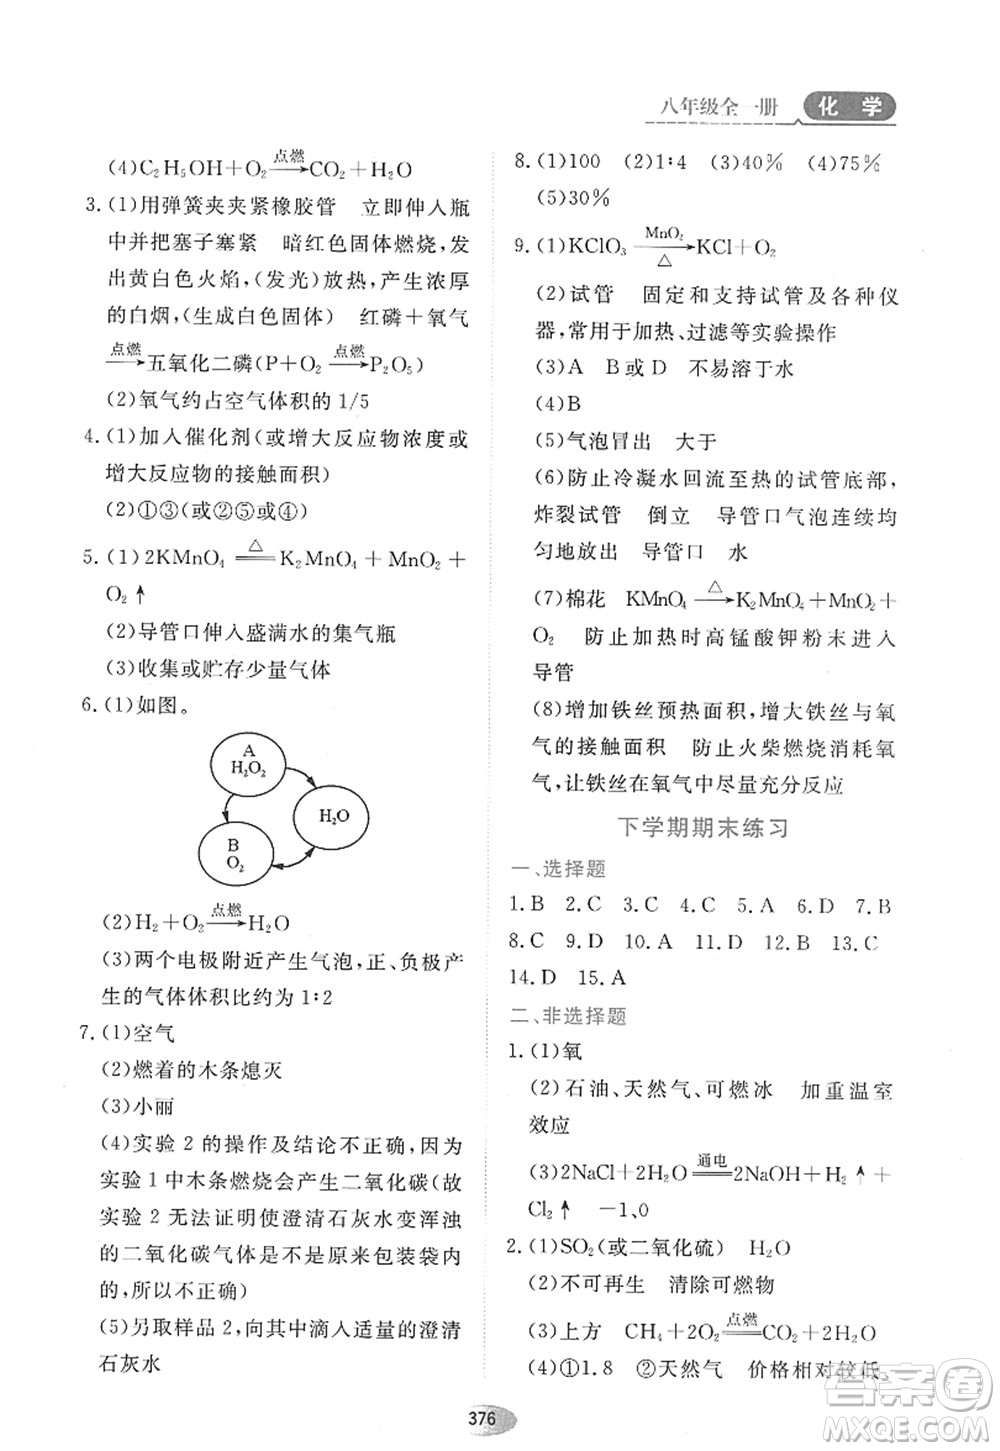 八年级全一册 化学
(4)C₂H₅OH＋O₂ 点燃→ CO₂＋H₂O
3. (1)用弹簧夹夹紧橡胶管 立即伸入瓶
中并把塞子塞紧 暗红色固体燃烧，发
出黄白色火焰，(发光)放热，产生浓厚
的白烟，(生成白色固体) 红磷＋氧气
点燃→ 五氧化二磷(P＋O₂ 点燃→ P₂O₅)
(2)氧气约占空气体积的 1/5
4. (1)加入催化剂(或增大反应物浓度或
增大反应物的接触面积)
(2)①③(或②⑤或④)
5. (1)2KMnO₄ △═ K₂MnO₄＋MnO₂＋
O₂↑
(2)导管口伸入盛满水的集气瓶
(3)收集或贮存少量气体
6. (1)如图。
A
H₂O₂
H₂O
B
O₂
(2)H₂＋O₂ 点燃→ H₂O
(3)两个电极附近产生气泡，正、负极产
生的气体体积比约为 1∶2
7. (1)空气
(2)燃着的木条熄灭
(3)小丽
(4)实验 2 的操作及结论不正确，因为
实验 1 中木条燃烧会产生二氧化碳(故
实验 2 无法证明使澄清石灰水变浑浊
的二氧化碳气体是不是原来包装袋内
的，所以不正确)
(5)另取样品 2，向其中滴入适量的澄清
石灰水
8. (1)100 (2)1∶4 (3)40％ (4)75％
(5)30％
9. (1)KClO₃ MnO₂→△ KCl＋O₂
(2)试管 固定和支持试管及各种仪
器，常用于加热、过滤等实验操作
(3)A B或D 不易溶于水
(4)B
(5)气泡冒出 大于
(6)防止冷凝水回流至热的试管底部，
炸裂试管 倒立 导管口气泡连续均
匀地放出 导管口 水
(7)棉花 KMnO₄ △→ K₂MnO₄＋MnO₂＋
O₂ 防止加热时高锰酸钾粉末进入
导管
(8)增加铁丝预热面积，增大铁丝与氧
气的接触面积 防止火柴燃烧消耗氧
气，让铁丝在氧气中尽量充分反应
下学期期末练习
一、选择题
1. B 2. C 3. C 4. C 5. A 6. D 7. B
8. C 9. D 10. A 11. D 12. B 13. C
14. D 15. A
二、非选择题
1. (1)氧
(2)石油、天然气、可燃冰 加重温室
效应
(3)2NaCl＋2H₂O 通电═ 2NaOH＋H₂↑＋
Cl₂↑ －1、0
2. (1)SO₂(或二氧化硫) H₂O
(2)不可再生 清除可燃物
(3)上方 CH₄＋2O₂ 点燃═ CO₂＋2H₂O
(4)①1.8 ②天然气 价格相对较低、
376
答案圈
MXQE.COM